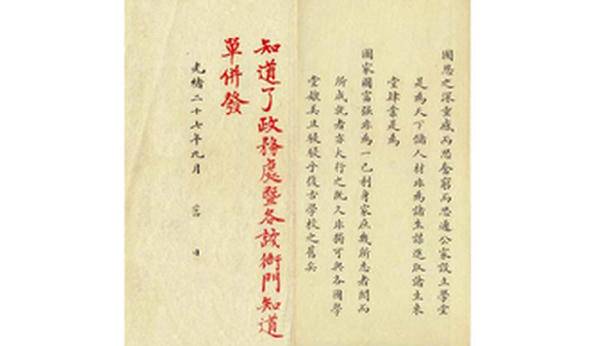 國恩之深重感而思奮窮而思通公家設立學堂
是為天下儲人材非為諸生謀進取諸生來
堂肄業是為
國家圖富強非為一己利身家庶幾所志者闊而
所成就者亦大行之既久非獨可與各國學
堂媲美且駸駸乎復古學校之舊矣
知道了政務處暨各該衙門知道
單併發
光緒二十七年九月 日